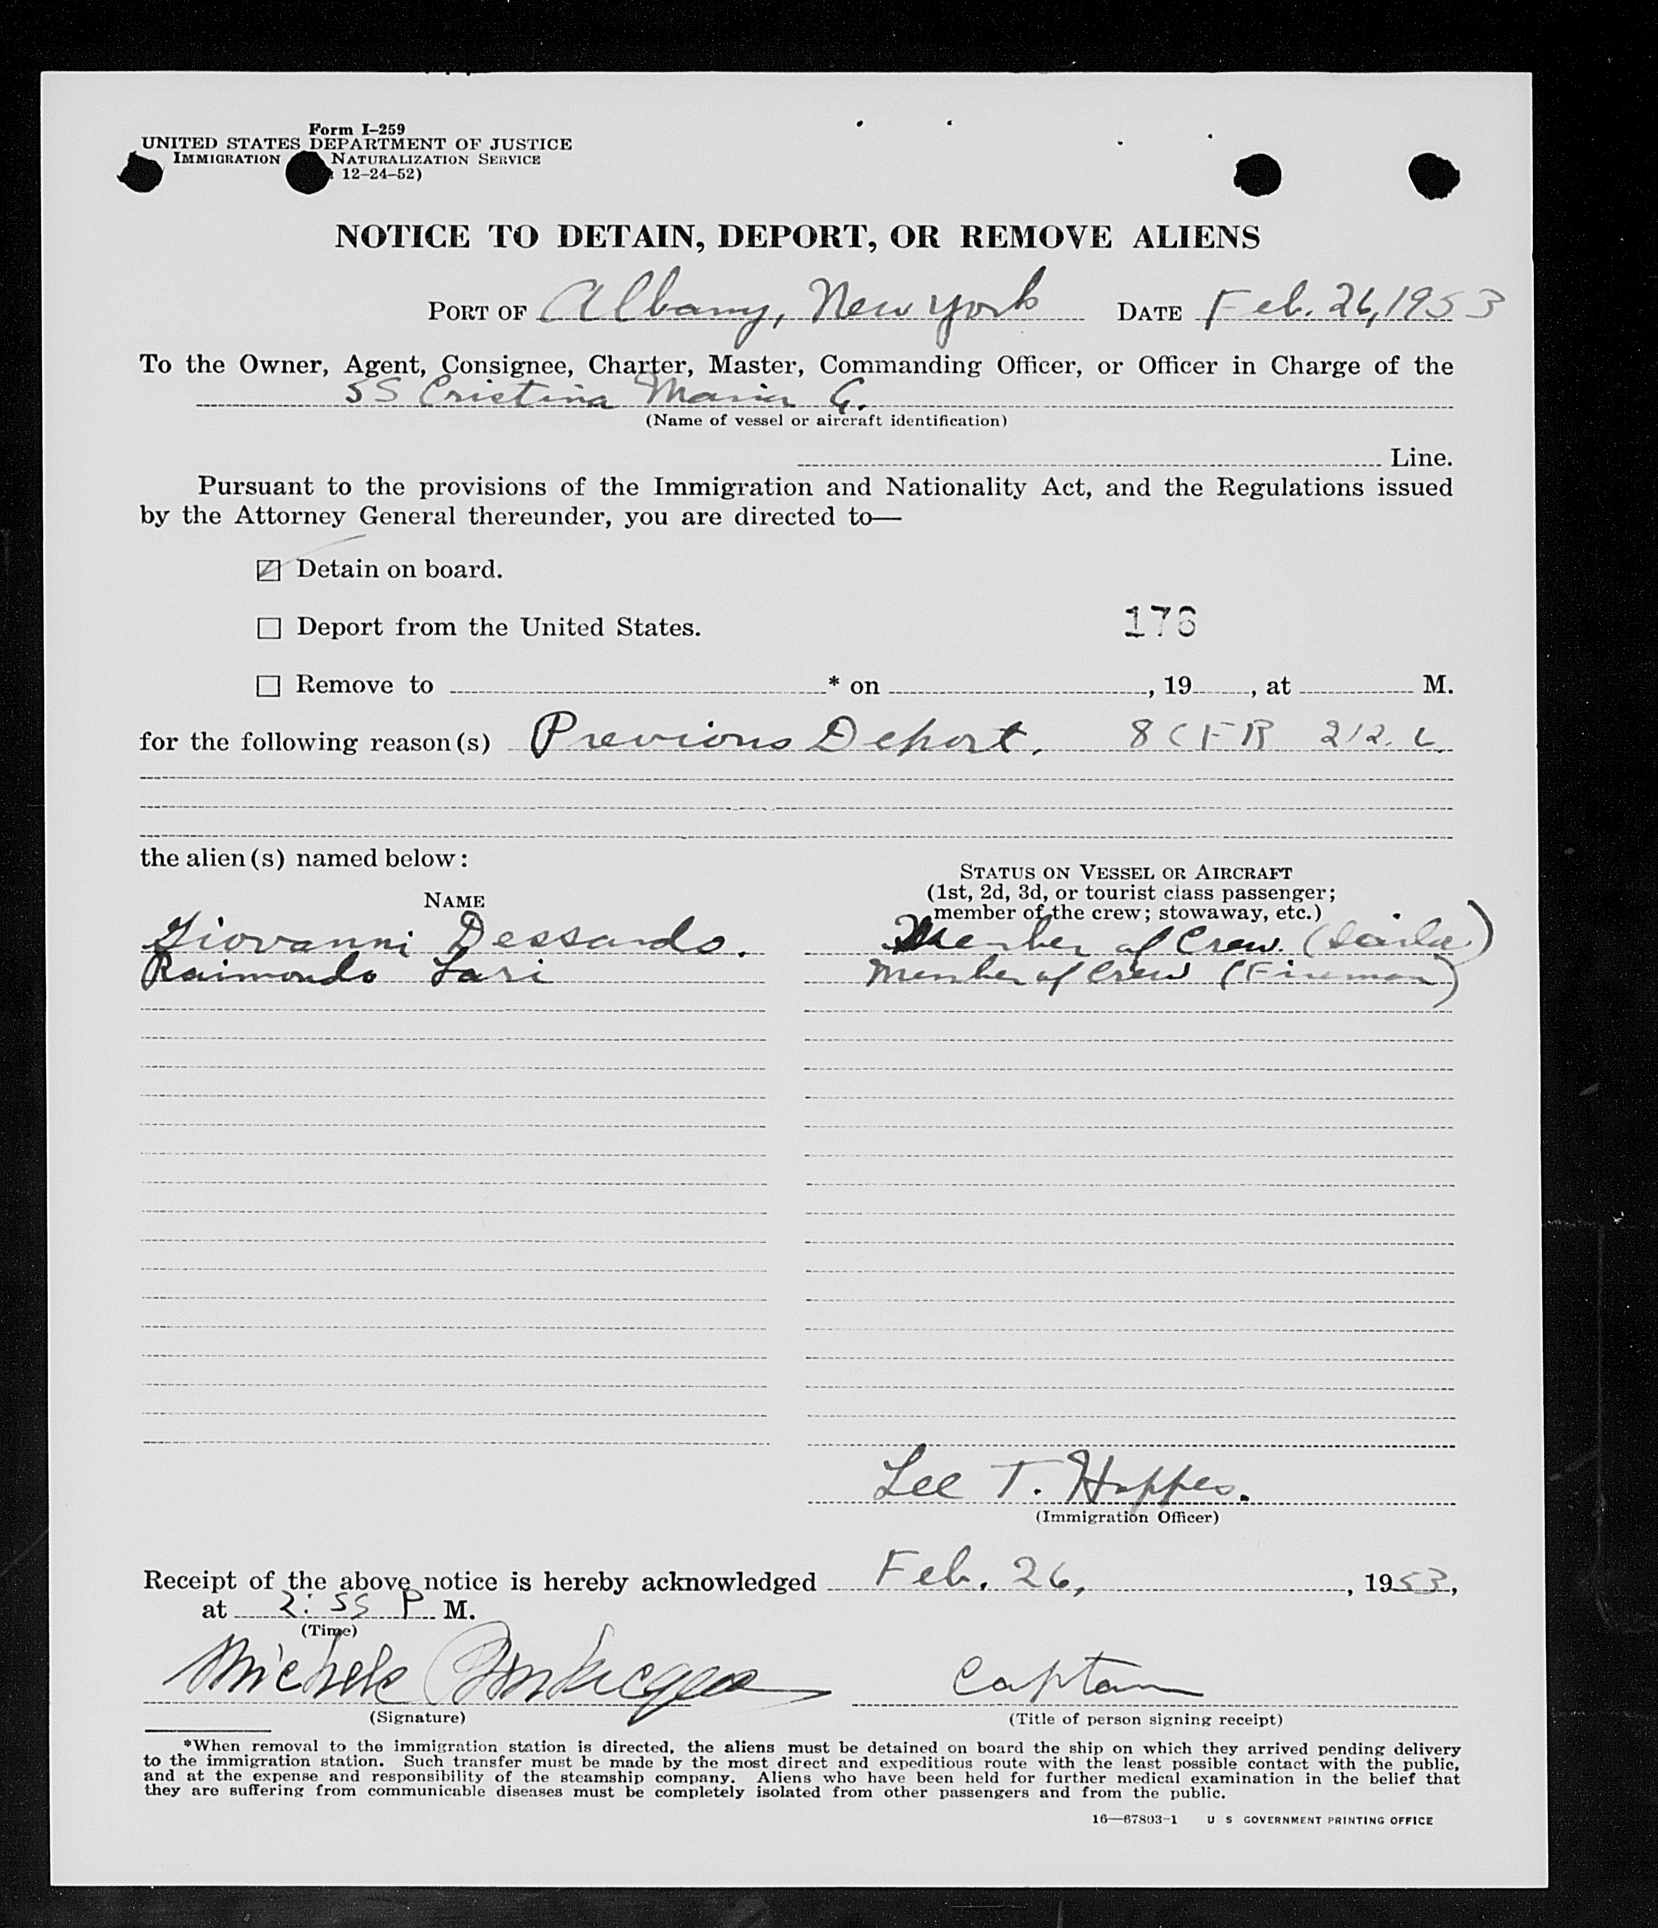 Form I-259
UNITED STATES DEPARTMENT OF JUSTICE
IMMIGRATION NATURALIZATION SERVICE
12-24-52)
NOTICE TO DETAIN, DEPORT, OR REMOVE ALIENS
PORT OF Albany, New York DATE Feb. 26, 1953
To the Owner, Agent, Consignee, Charter, Master, Commanding Officer, or Officer in Charge of the
SS Cristina Maria G.
(Name of vessel or aircraft identification)
Line.
Pursuant to the provisions of the Immigration and Nationality Act, and the Regulations issued
by the Attorney General thereunder, you are directed to—
Detain on board.
Deport from the United States.
176
Remove to * on , 19 , at M.
for the following reason(s) Previous Deport. 8 CFR 212.
the alien(s) named below:
STATUS ON VESSEL OR AIRCRAFT
(1st, 2d, 3d, or tourist class passenger;
member of the crew; stowaway, etc.)
NAME
Giovanni Dessardo. Member of Crew.
Raimondo Lari Member of Crew (Fireman)
Lee T. Hoppes.
(Immigration Officer)
Receipt of the above notice is hereby acknowledged Feb. 26, , 1953,
at 2:55 P M.
(Time)
Michele Captain
(Signature) (Title of person signing receipt)
*When removal to the immigration station is directed, the aliens must be detained on board the ship on which they arrived pending delivery
to the immigration station. Such transfer must be made by the most direct and expeditious route with the least possible contact with the public,
and at the expense and responsibility of the steamship company. Aliens who have been held for further medical examination in the belief that
they are suffering from communicable diseases must be completely isolated from other passengers and from the public.
16—67803-1 U S GOVERNMENT PRINTING OFFICE